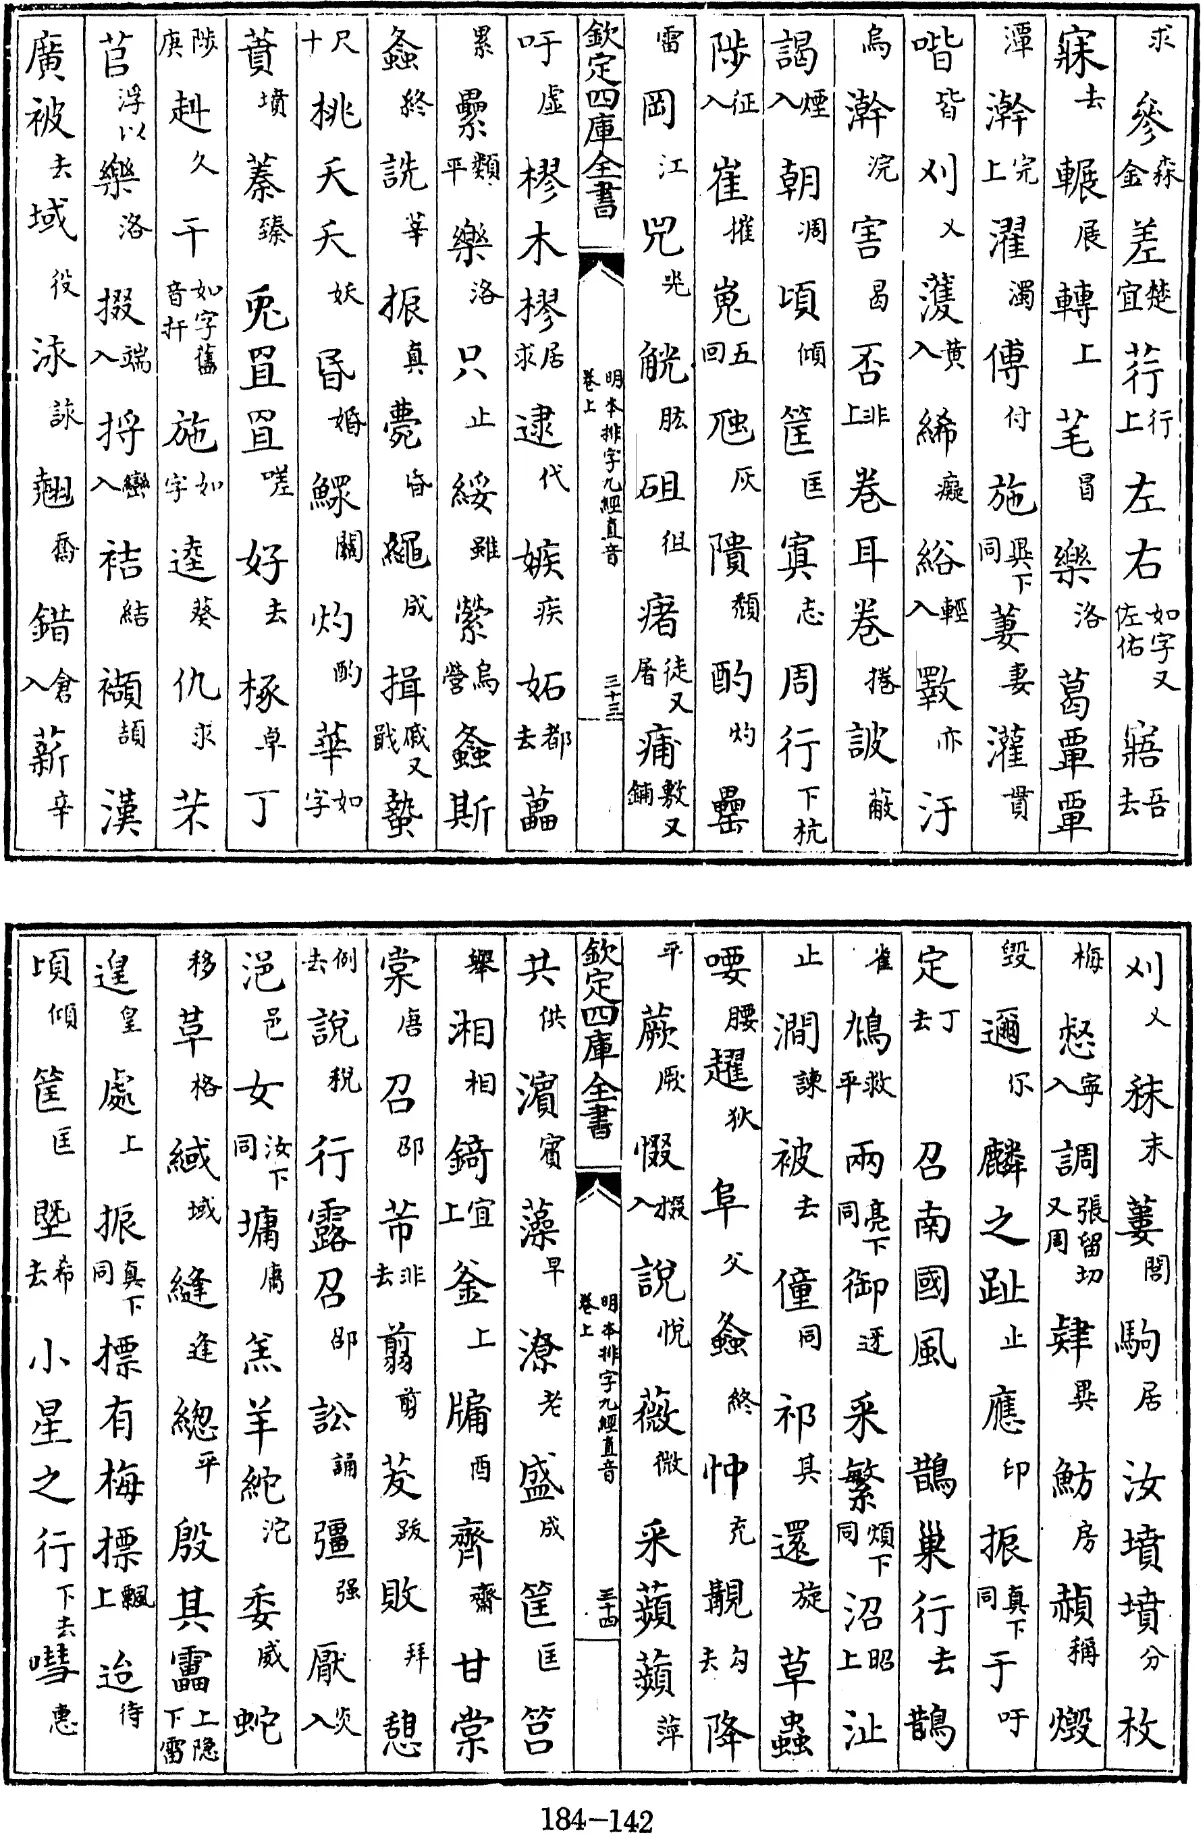 求參森金差楚宜荇行上左右如字又佐佑寤吾去
寐去輾展轉上芼冒樂洛葛覃覃
潭澣完上濯濁傅付施異下同萋妻灌貫
喈皆刈乂濩黄入絺癡綌輕入斁亦汙
烏澣浣害曷否非上卷耳卷捲詖蔽
謁煙入朝凋頃傾筐匡寘志周行下杭
陟征入崔摧嵬五回虺灰隤頽酌灼罍
雷岡江兕觥肱砠徂瘏徒又屠痡敷又鋪
欽定四庫全書 明本排字九經直音卷上 三十三
吁虚樛木樛居求逮代嫉疾妬都去藟
累纍類平樂洛只止綏雖縈烏營螽斯
螽終詵莘振真薨昏繩成揖戚又戢蟄
尺十桃夭夭妖昏婚鰥關灼酌華如字
蕡墳蓁臻兎罝罝嗟好去椓卓丁
陟庚赳久干如字舊音扞施如字逵葵仇求芣
苢浮以樂洛掇端入捋巒入袺結襭頡漢
廣被去域役泳詠翹喬錯倉入薪辛
刈乂秣末蔞閭駒居汝墳墳分枚
梅惄寧入調張留切又周肄異魴房赬稱燬
毀邇尔麟之趾止應印振真下同于吁
定丁去召南國風鵲巢行去鵲
雀鳩救平兩亮下同御迓采繁煩下同沼昭上沚
止澗諫被去僮同祁其還旋草蟲
喓腰趯狄阜父螽終忡充覯勾去降
平蕨厥惙掇入說悅薇微采蘋蘋萍
欽定四庫全書 明本排字九經直音卷上 三十四
共供濱賓藻早潦老盛成筐匡筥
舉湘相錡宜上釜上牖酉齊齋甘棠
棠唐召邵芾非去翦剪茇跋敗拜憩
例去說稅行露召邵訟誦彊强厭炎入
浥邑女汝下同墉庸羔羊紽沱委威蛇
移草格緎域縫逢緫平殷其靁上隱下雷
遑皇處上振真下同摽有梅摽飄上迨待
頃傾筐匡塈希去小星之行下去嘒惠
184-142